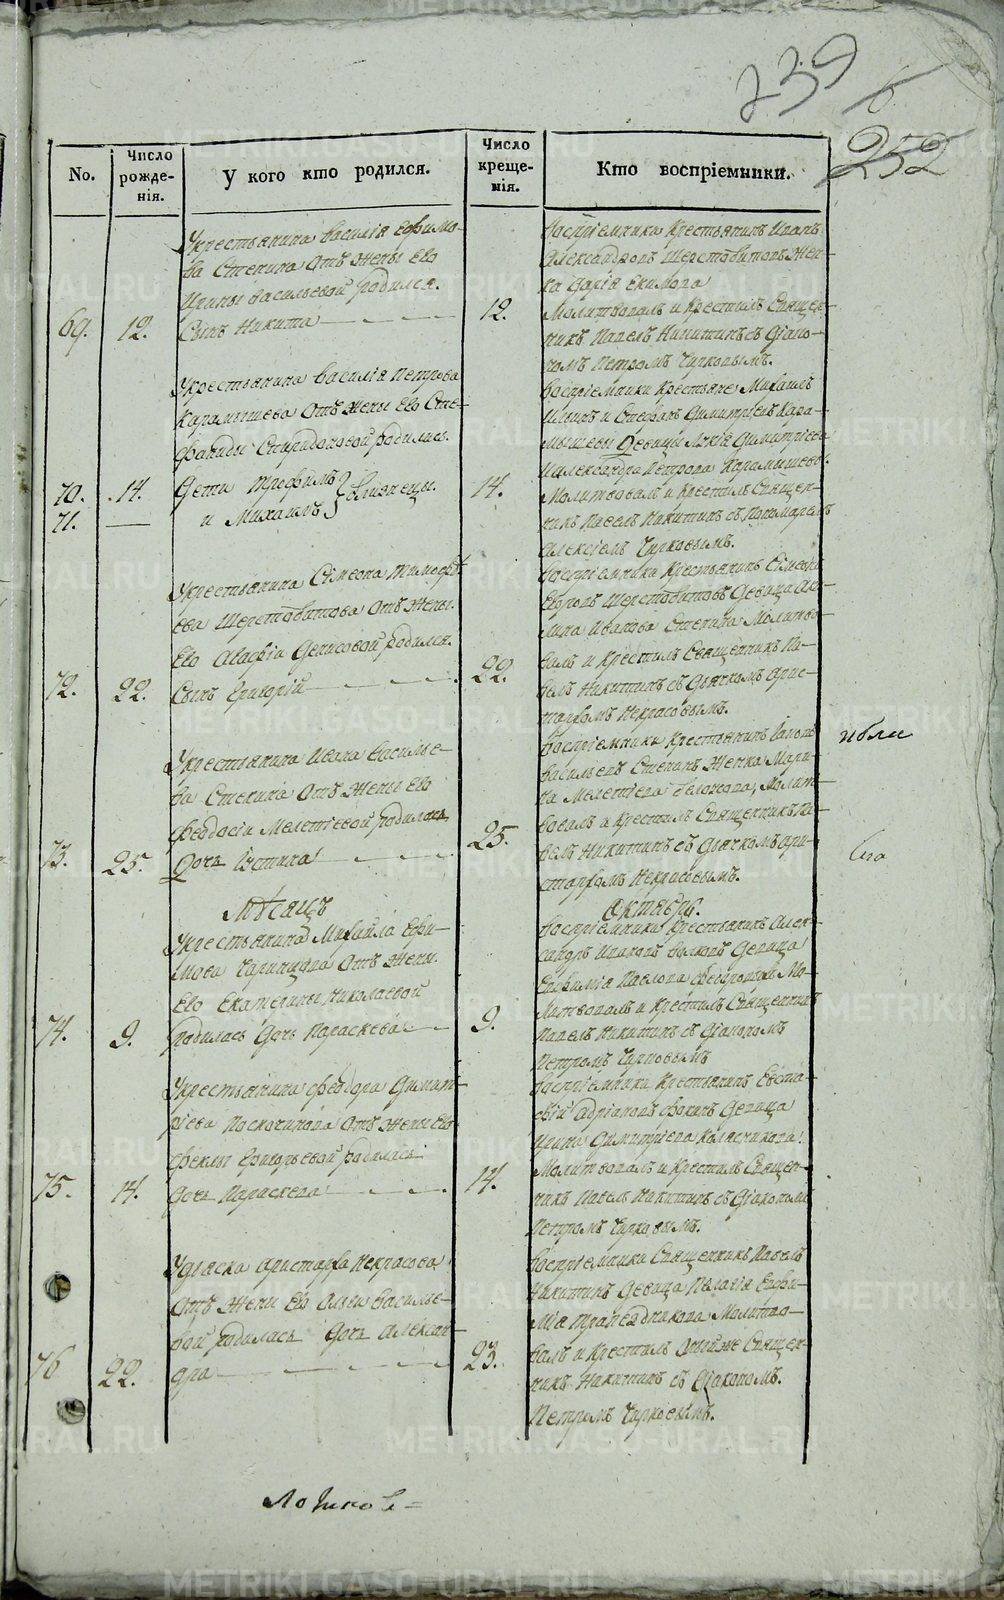 239
252
No.
Число рожде-нія.
У кого кто родился.
Число креще-нія.
Кто воспріемники.
69.
12.
Укрестьянина Василія Ефимо-
ва Стенина Отъ Жены Его
Ирины Васильевой родился.
Сынъ Никита
12.
Воспріемники Крестьянинъ Иванъ
Александровъ Шерстобитовъ Жен-
ка Дарія Екимова
Молитвовалъ и Крестилъ Священ-
никъ Павелъ Никитинъ съ Діако-
номъ Петромъ Чирковымъ.
70.
71.
14.
Укрестьянина Василія Петрова
Карамышева Отъ Жены Его Сте-
фаниды Спиридоновой родились.
Дети Трофимъ
и Михаилъ
близнецы.
14.
Воспріемники Крестьяне Михаилъ
Ильинъ и Стефанъ Димитріевъ Кара-
мышевы Девицы Димитріева
и Александра Петрова Карамышевы.
Молитвовалъ и Крестилъ Священ-
никъ Павелъ Никитинъ съ Пономаремъ
Алексіемъ Чирковымъ.
72.
22.
Укрестьянина Сімеона Тимофе-
ева Шерстобитова Отъ Жены.
Его Агафіи Денисовой родился.
Сынъ Григорій
22.
Воспріемники Крестьянинъ Сімеонъ
Егоровъ Шерстобитовъ Девица Аку-
лина Иванова Стенина Молитво-
валъ и Крестилъ Священникъ Па-
велъ Никитинъ съ Дьячкомъ Арис-
тархомъ Некрасовымъ.
73.
25.
Укрестьянина Ивана Василье-
ва Стенина Отъ Жены Его
Феодосіи Мелетіевой родилась
Дочь Іустина
25.
Воспріемники Крестьянинъ
Васильевъ Стенинъ Женка Мари-
на Мелетіева Молит-
вовалъ и Крестилъ Священникъ Па-
велъ Никитинъ съ Дьячкомъ Ари-
стархомъ Некрасовымъ.
Мѣсяцъ
Октябрь.
74.
9.
Укрестьянина Михаила Ефи-
мова Отъ Жены.
Его Екатерины Николаевой
родилась Дочь Параскева
9.
Воспріемники Крестьянинъ Алек-
сандръ Ивановъ Волковъ Девица
Евфимія Павлова Мо-
литвовалъ и Крестилъ Священникъ
Павелъ Никитинъ съ Діакономъ
Петромъ Чирковымъ
75.
14.
Укрестьянина Феодора Димит-
ріева Поскочинова Отъ Жены Его
Феклы Григорьевой родилась
Дочь Параскева
14.
Воспріемники Крестьянинъ Евста-
фій Адріановъ Фокинъ Девица
Ирина Димитріева Колясникова.
Молитвовалъ и Крестилъ Священ-
никъ Павелъ Никитинъ съ Діакономъ
Петромъ Чирковымъ.
76
22.
Удьячка Аристарха Некрасова
Отъ Жены Его Ольги Василье-
вой родилась Дочь Алексан-
дра
23.
Воспріемники Священникъ Павелъ
Никитинъ Девица Пелагія Ефи-
мія Трапездникова Молитво-
валъ и Крестилъ Священ-
никъ Никитинъ съ Діакономъ.
Петромъ Чирковымъ.